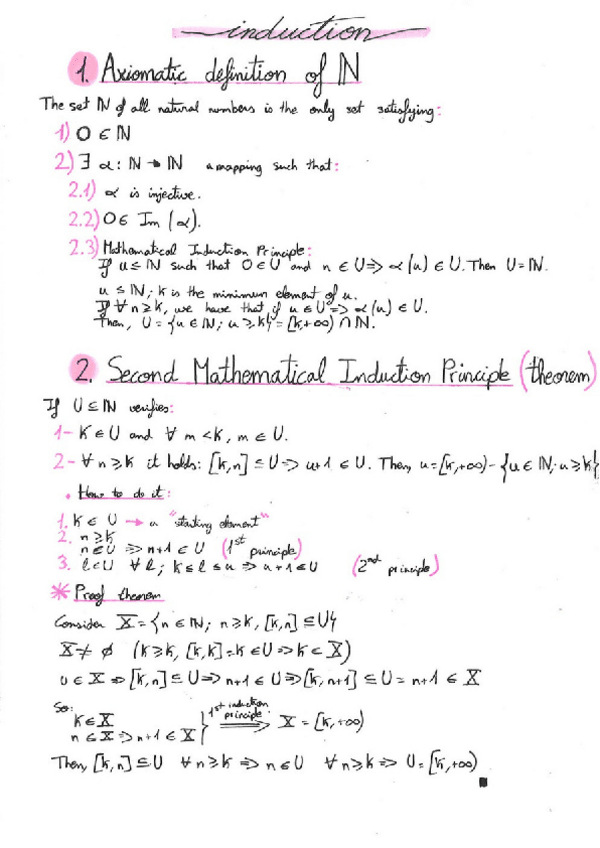 induction
1. Axiomatic definition of ℕ
The set ℕ of all natural numbers is the only set satisfying:
1) 0 ∈ ℕ
2) ∃ α: ℕ → ℕ a mapping such that:
2.1) α is injective.
2.2) 0 ∈ Im (α).
2.3) Mathematical Induction Principle:
If u ≤ ℕ such that 0 ∈ U and n ∈ U ⇒ α(u) ∈ U. Then U = ℕ.
u ≤ ℕ; k is the minimum element of u.
If ∀ n ≥ k, we have that if u ∈ U ⇒ α(u) ∈ U.
Then, U = {u ∈ ℕ; u ≥ k} = [k, +∞) ∩ ℕ.
2. Second Mathematical Induction Principle (theorem)
If U ⊆ ℕ verifies:
1- K ∈ U and ∀ m < K, m ∈ U.
2- ∀ n ≥ K it holds: [K, n] ⊆ U ⇒ u+1 ∈ U. Then, u = [K, +∞) - {u ∈ ℕ; u ≥ k}
• How to do it:
1. K ∈ U → a "starting element"
2. n ≥ K
n ∈ U ⇒ n+1 ∈ U (1st principle)
3. l ∈ U ∀ l; K ≤ l ≤ u ⇒ u+1 ∈ U (2nd principle)
* Proof theorem
Consider X = {n ∈ ℕ; n ≥ K, [K, n] ⊆ U}
X ≠ ∅ (K ≥ K, [K, K] = K ∈ U ⇒ K ∈ X)
u ∈ X ⇒ [K, n] ⊆ U ⇒ n+1 ∈ U ⇒ [K, n+1] ⊆ U = n+1 ∈ X
So:
K ∈ X
n ∈ X ⇒ n+1 ∈ X } 1st induction principle ⇒ X = [K, +∞)
Then, [K, n] ⊆ U ∀ n ≥ K ⇒ n ∈ U ∀ n ≥ K ⇒ U = [K, +∞)